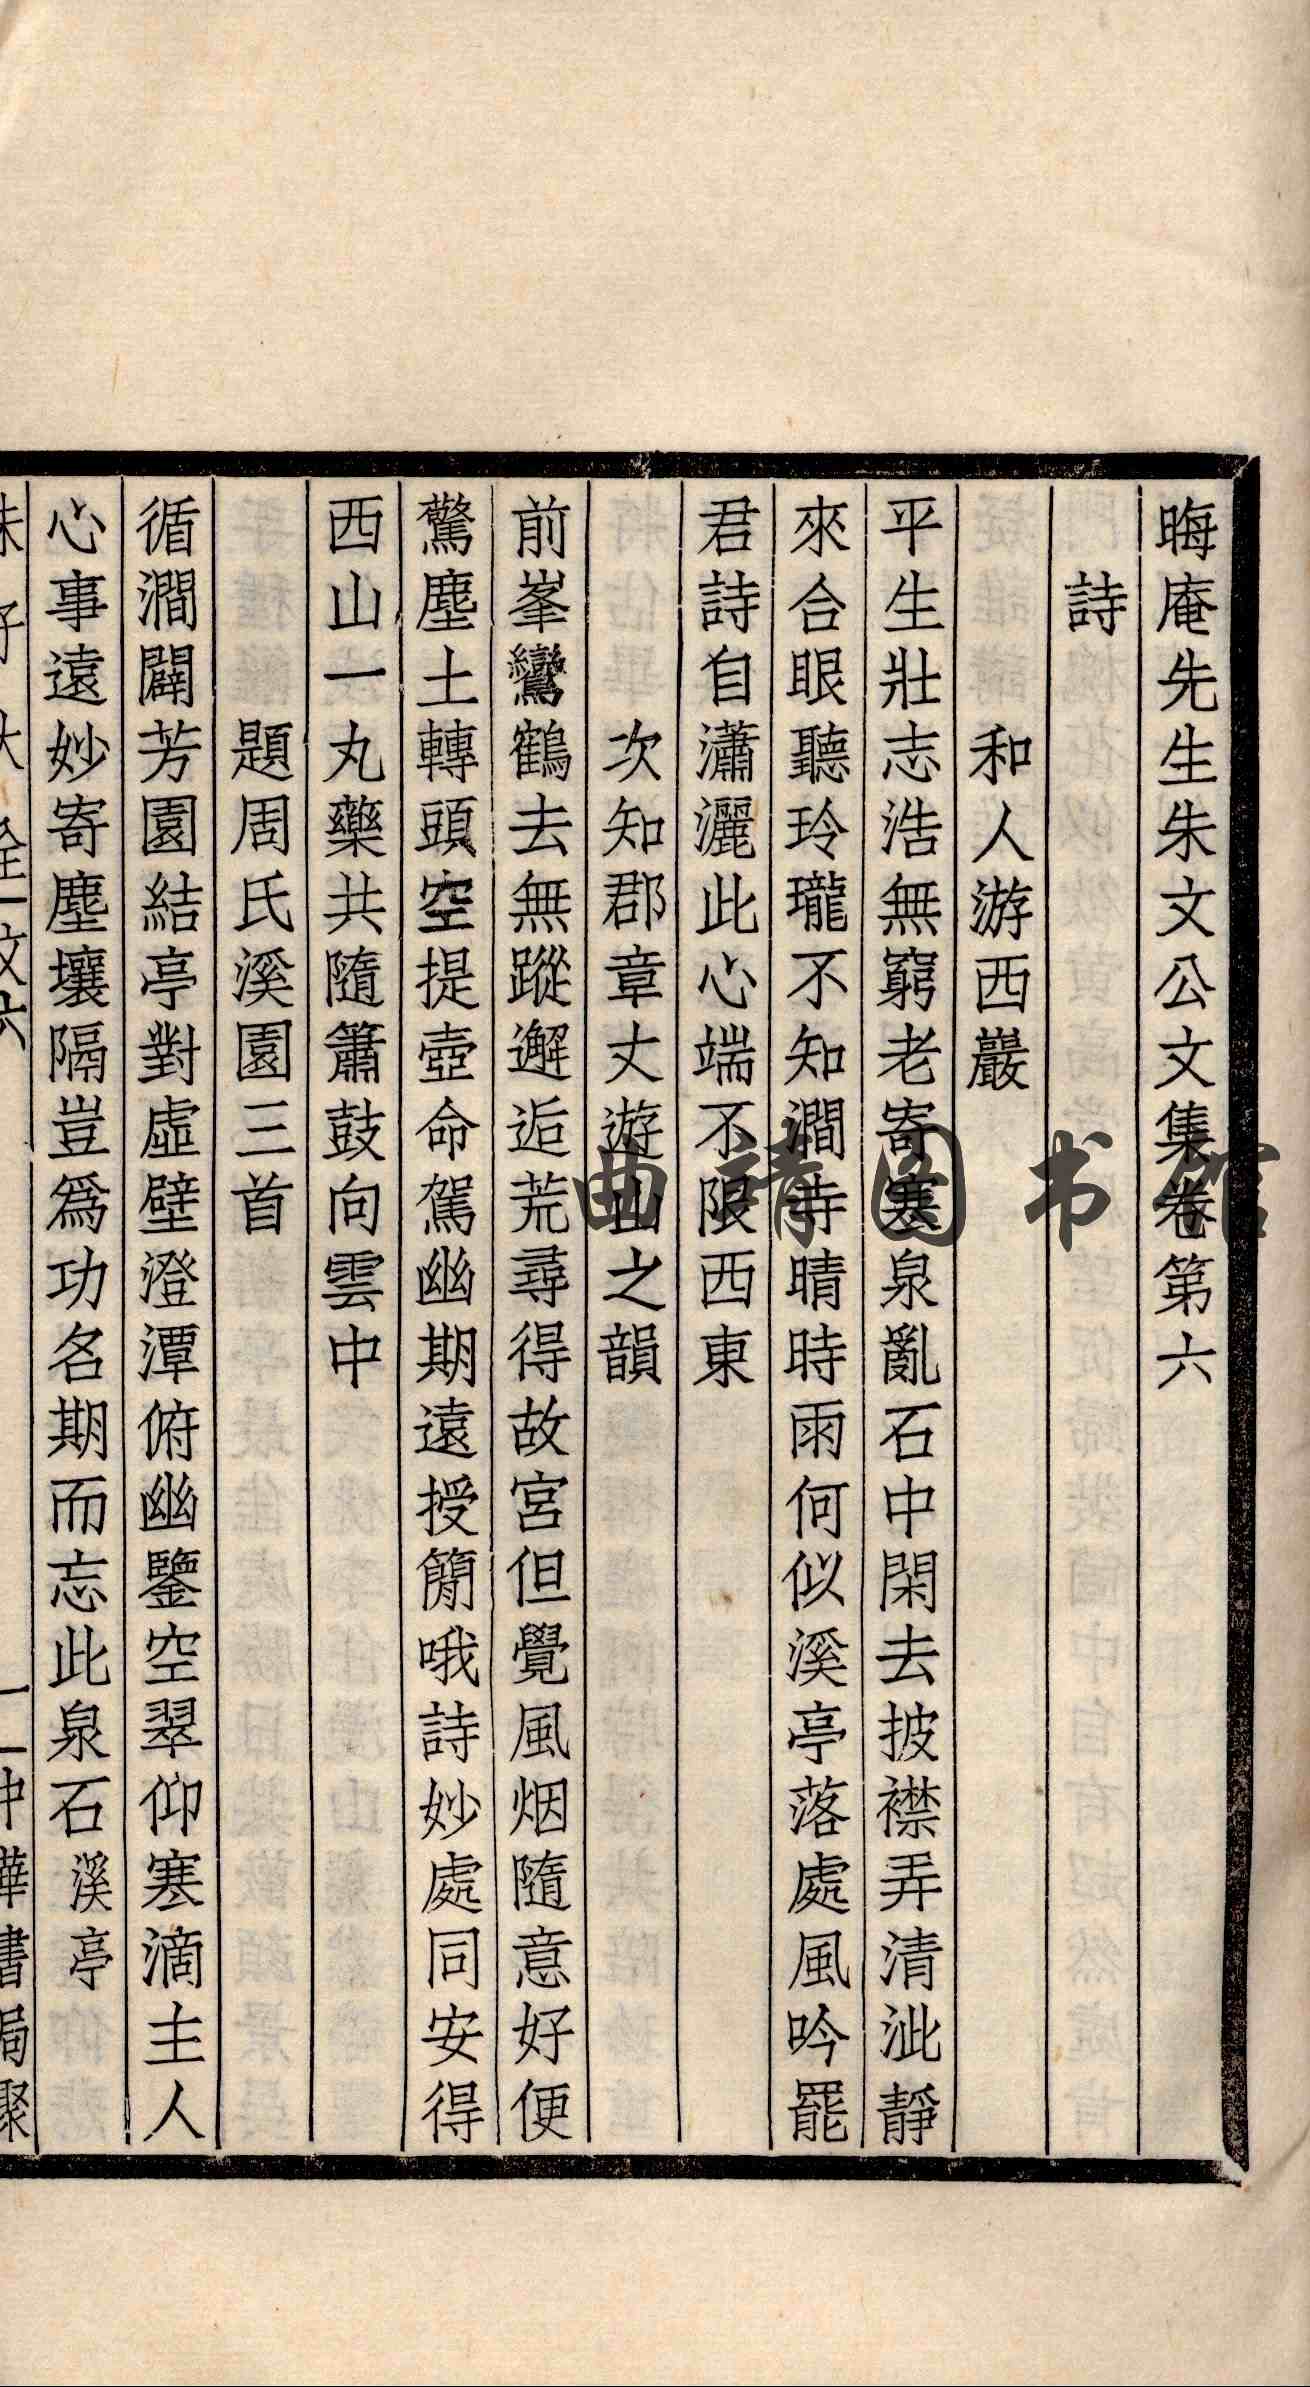 晦庵先生朱文公文集卷第六
詩
和人游西巖
平生壯志浩無窮老寄寒泉亂石中閑去披襟弄清泚靜
來合眼聽玲瓏不知澗寺晴時雨何似溪亭落處風吟罷
君詩自瀟灑此心端不限西東
次知郡章丈遊山之韻
前峯鸞鶴去無蹤邂逅荒尋得故宮但覺風烟隨意好便
驚塵土轉頭空提壺命駕幽期遠授簡哦詩妙處同安得
西山一丸藥共隨簫鼓向雲中
題周氏溪園三首
循澗闢芳園結亭對虛壁澄潭俯幽鑒空翠仰寒滴主人
心事遠妙寄塵壤隔豈為功名期而忘此泉石溪亭
朱子大全文六
一中華書局聚
曲靖图书馆